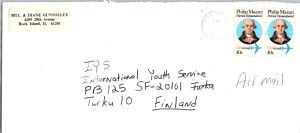 BILL & DIANE GUNSOLLEY
Rock Island, IL 61201
Philip Mazzei
Patriot Remembered
USAirmail
40c
Philip Mazzei
Patriot Remembered
USAirmail
40c
IYS
International Youth Service
PB 125 SF-20101 Turku
Turku 10
Finland
Air mail